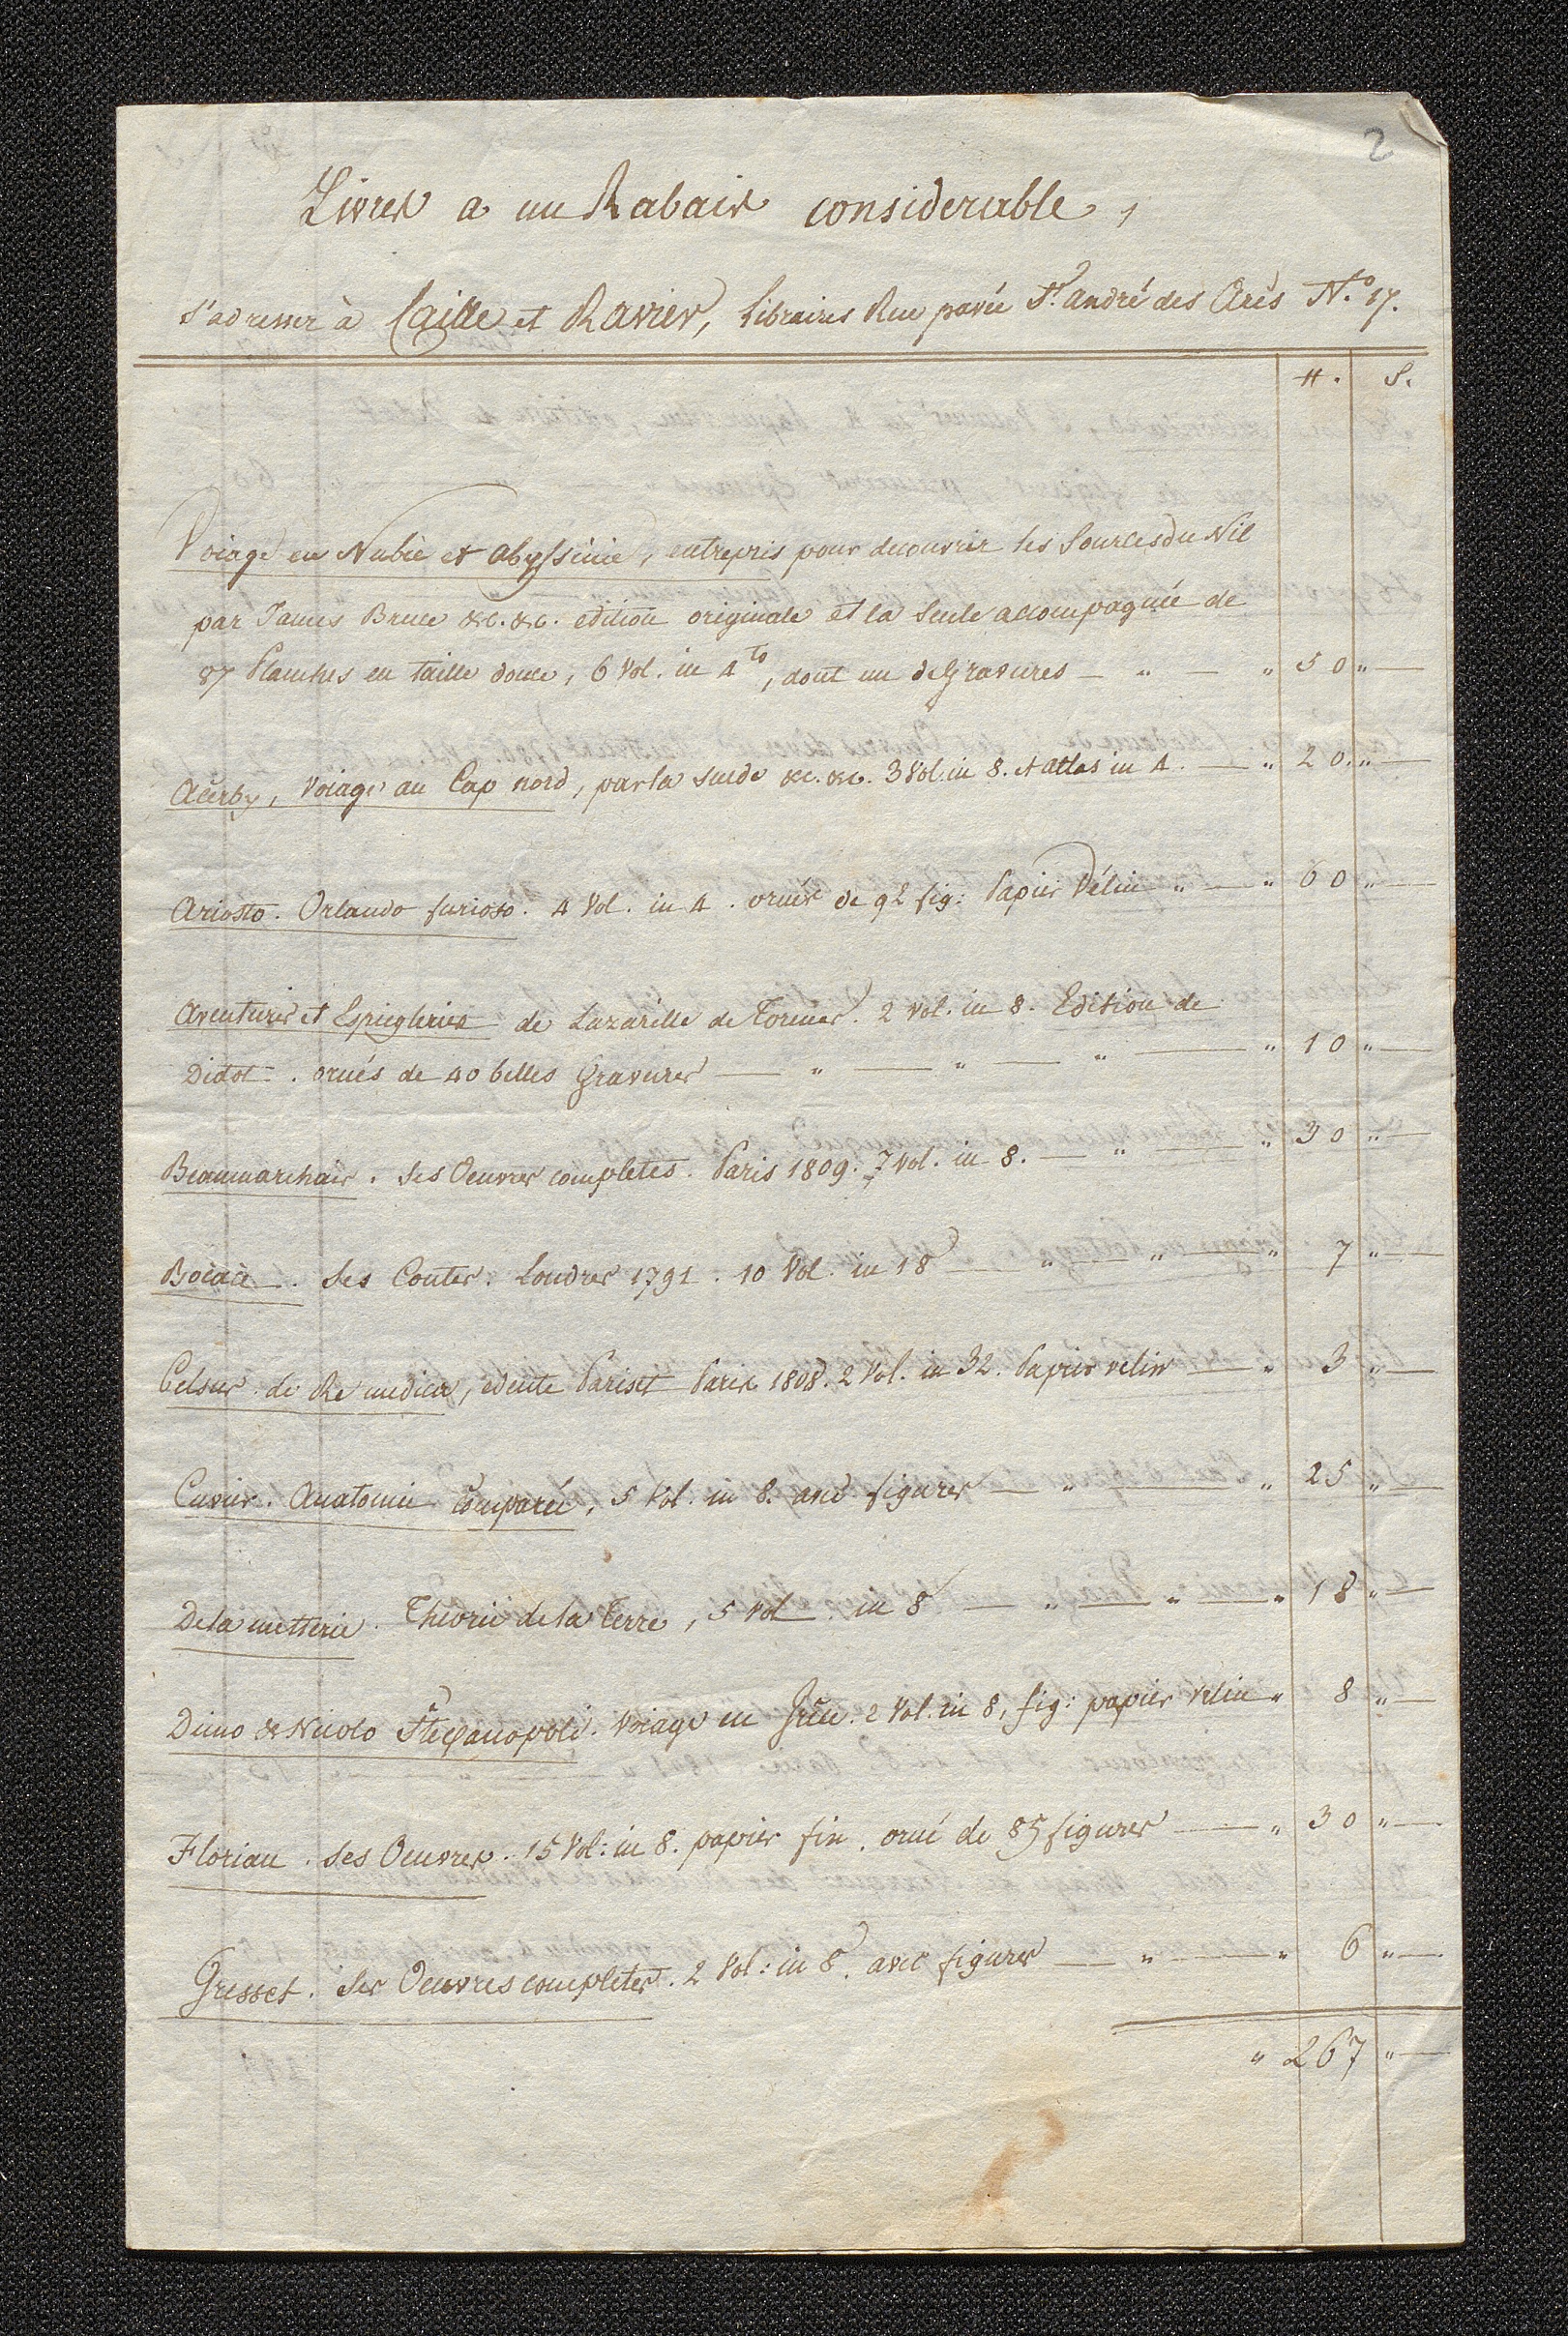 2
Livres a un Rabais considerable,
S'adresser à Caille et Ravier, Libraires Rue pavée St. André des Arcs N.º 17.
#. S.
Voiage en Nubie et abyssinie, entrepris pour decouvrir les Sources du Nil
par James Bruce &c. &c. edition originale et la Seule accompagnée de
87 Planches en taille douce, 6 Vol. in 4to, dont un de Gravures — " — " 50 " —
Acerby, Voiage au Cap nord, par la suede &c. &c. 3 Vol. in 8. et atlas in 4. — " 20. " —
Ariosto. Orlando furioso. 4 Vol. in 4. ornés de 92 fig: Papier Vélin " — " 60 " —
Aventures et Espiegleries de Lazarille de Tormes. 2 Vol. in 8. Edition de
Didot. ornés de 40 belles Gravures — " — " — " — " 10 " —
Beaumarchais. Ses Oeuvres completes. Paris 1809. 7 Vol. in 8. — " — " 30 " —
Bocace. Ses Contes. Londres 1791. 10 Vol. in 18 — " — " — " 7 " —
Celsus de Re medica, edente Pariset Paris 1808. 2 Vol. in 32. Papier velin — " 3 " —
Cuvier. Anatomie comparée, 5 Vol. in 8. avec figures — " — " 25 " —
De la metterie. Theorie de la Terre, 5 Vol. in 8 — " — " — " 18 " —
Dimo & Nicolo Stephanopoli. Voiage en Grèce. 2 Vol. in 8, fig: papier velin " 8 " —
Florian. Ses Oeuvres. 15 Vol: in 8. papier fin. orné de 85 figures — " 30 " —
Gresset. Ses Oeuvres completes. 2 Vol: in 8. avec figures — " — " 6 " —
" 267 " —